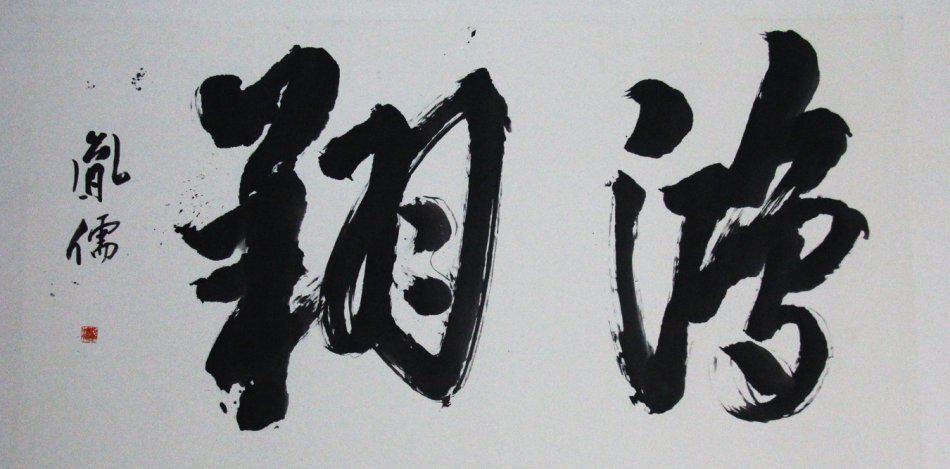 鴻翔
胤儒